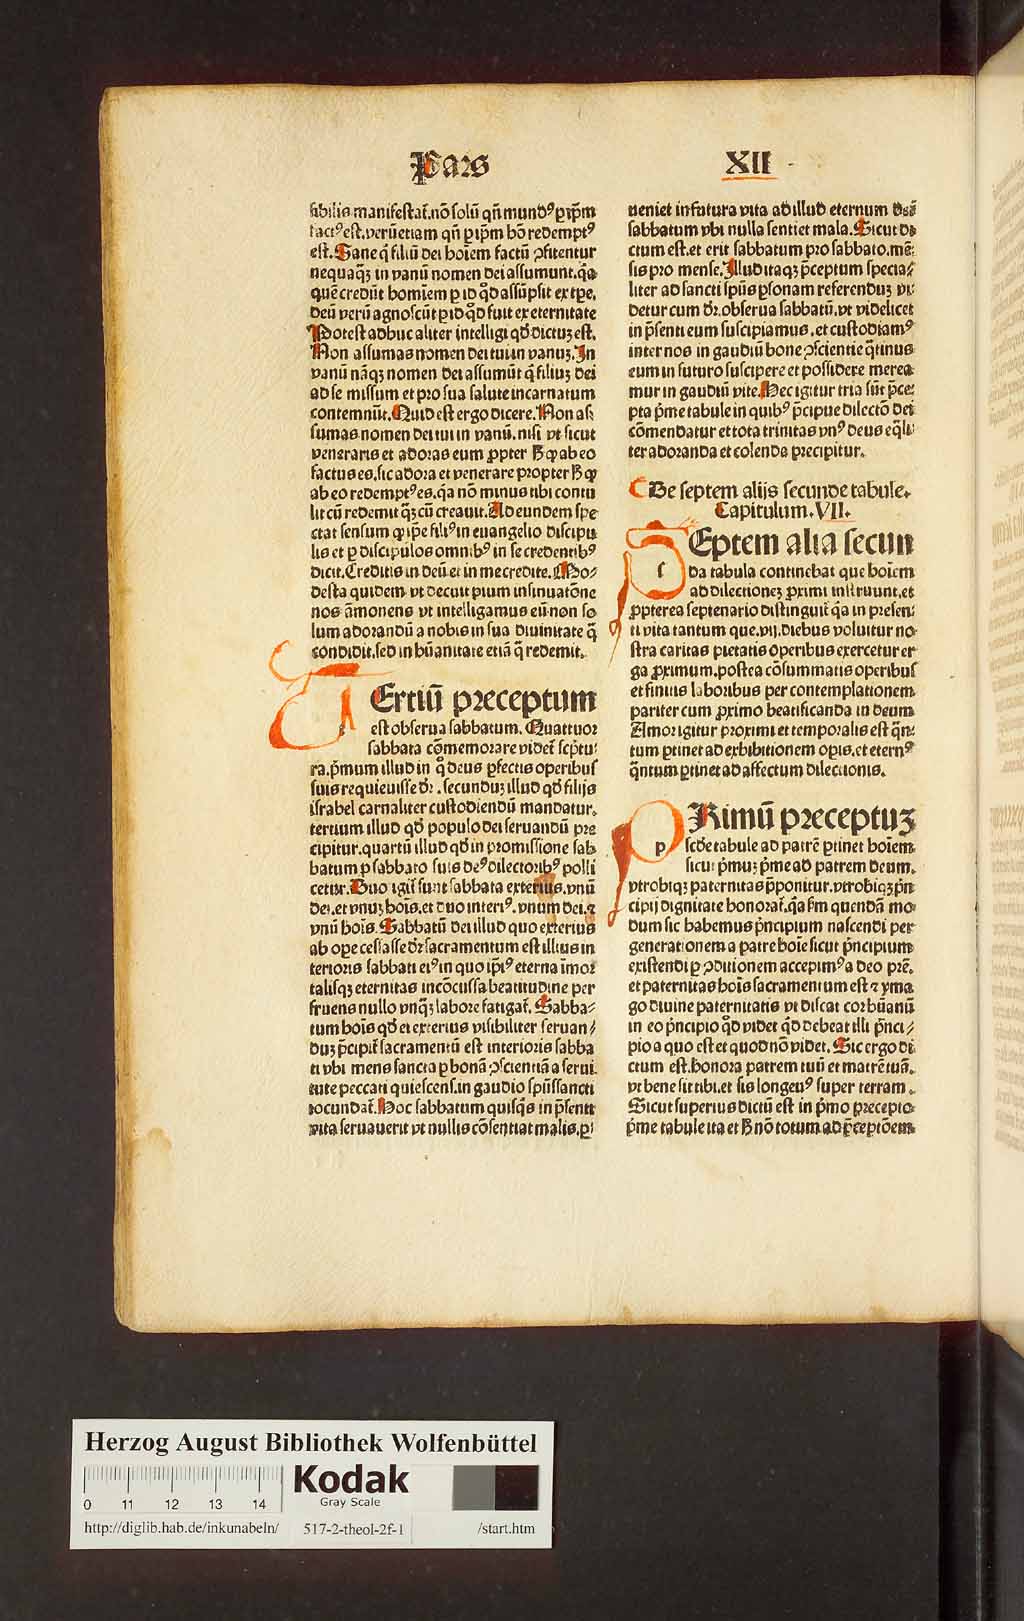 Pars
XII
sibilis manifestat̃.nõ solũ qñ mundꝰ ꝑ ip̃m
factꝰ est.verũetiam qñ ꝑ ip̃m hõ redemptꝰ
est. Sane q̃ filiũ dei hoĩem factũ ↄfitentur
nequaq̃ꝫ in vanũ nomen dei assumunt.q̃a
quẽ credũt hominẽ ꝑ id qð assũpsit ex tꝑe.
deũ verũ agnoscũt ꝑ id qð fuit ex eternitate
Potest adhuc aliter intelligi qð dictuꝫ est.
Non assumas nomen dei tui in vanuꝫ. In
vanũ nãqꝫ nomen dei assumũt q̃ filiuꝫ dei
ad se missum et pro sua salute incarnatum
contemnũt. Quid est ergo dicere. Non as
sumas nomen dei tui in vanũ.nisi vt sicut
veneraris et adoras eum ꝓpter ħ ꝙ ab eo
factus es.sic adora et venerare propter ħ ꝙ
ab eo redemptꝰ es.q̃a nõ minus tibi contu
lit cũ redemit q̃ꝫ cũ creauit. Ad eundem spe
ctat sensum q̃ ip̃e filiꝰ in euangelio discipu
lis et ꝑ discipulos omnibꝰ in se credentibꝰ
dicit. Creditis in deũ et in me credite. Mo-
desta quidem vt decuit pium insinuatõne
nos ãmonens vt intelligamus eũ non so
lum adorandũ a nobis in sua diuinitate q̃
condidit.sed in hũanitate etiã q̃ redemit.
TErtiũ preceptum
t
est obserua sabbatum. Quattuor
sabbata cõmemorare videt̃ scptu:
ra.p̃mum illud in q̊ deus ꝑfectis operibus
suis requieuisse dr̃. secunduꝫ illud qð filijs
israhel carnaliter custodiendũ mandatur.
tertium illud qð populo dei seruandũ pre
cipitur.quartũ illud qð in promissione sab
batum ꝑ sabbato suis deꝰ dilectoribꝰ polli
cetur. Duo igit̃ sunt sabbata exterius.vnũ
dei.et vnuꝫ hoĩs.et duo interiꝰ.vnum dei.⁊
vnũ hoĩs. Sabbatũ dei illud quo exterius
ab oꝑe cessasse dr̃ sacramentum est illius in
terioris sabbati eiꝰ in quo ip̃iꝰ eterna ĩmor
talisqꝫ eternitas incõcussa beatitudine per
fruens nullo vnq̃ꝫ labore fatigat̃. Sabba-
tum hoĩs qð ei exterius visibiliter seruan-
duꝫ p̃cipit̃ sacramentũ est interioris sabba
ti vbi mens sancta ꝑ bonã ↄscientiã a serui
tute peccati quiescens.in gaudio spũssancti
iocundat̃. Hoc sabbatum quisq̃s in p̃senti
vita seruauerit vt nullis cõsentiat malis.ꝑ
ueniet in futura vita ad illud eternum dei
sabbatum vbi nulla sentiet mala. Sicut di
ctum est.et erit sabbatum pro sabbato.mẽ:
sis pro mense. Illud itaqꝫ p̃ceptum specia-
liter ad sancti spũs ꝑsonam referenduꝫ vi:
detur cum dr̃.obserua sabbatũ.vt videlicet
in p̃senti eum suscipiamus.et custodiamꝰ
inter nos in gaudiũ bone ↄscientie q̃tinus
eum in futuro suscipere et possidere merea
mur in gaudiũ vite. Hec igitur tria sũt p̃ce:
pta p̃me tabule in quibꝰ p̃cipue dilectõ dei
cõmendatur et tota trinitas vnꝰ deus eq̃li:
ter adoranda et colenda precipitur.
De septem alijs secunde tabule.
Capitulum.VII.
SEptem alia secun
s
da tabula continebat que hoĩem
ad dilectionẽ ꝓximi instruunt.et
ꝓpterea septenario distinguit̃ q̃a in presen:
ti vita tantum que.vij.diebus voluitur no:
stra caritas pietatis operibus exercetur er
ga ꝓximum.postea cõsummatis operibus
et finitis laboribus per contemplationem
pariter cum ꝓximo beatificanda in deum
Amor igitur proximi et temporalis est q̃n:
tum ꝑtinet ad exhibitionem oꝑis.et eternꝰ
q̃ntum ꝑtinet ad affectum dilectionis.
PRimũ preceptuꝫ
p
scðe tabule ad patrẽ ꝑtinet hoĩem
sicut p̃muꝫ p̃me ad patrem deum.
vtrobiqꝫ paternitas p̃ponitur.vtrobiqꝫ p̃n
cipij dignitate honorat̃.q̃a ẜm quendã mo:
dum sic habemus p̃ncipium nascendi per
generationem a patre hoĩe sicut p̃ncipium
existendi ꝑ ↄditionem accepimꝰ a deo pr̃e.
et paternitas hoĩs sacramentum est ⁊ yma
go diuine paternitatis vt discat cor hũanũ
in eo p̃ncipio qð videt qð debeat illi p̃nci-
pio a quo est et quod nõ videt. Sic ergo di:
ctum est.honora patrem tuũ et matrẽ tuã.
vt bene sit tibi.et sis longeuꝰ super terram.
Sicut superius dictũ est in p̃mo precepto
p̃me tabule ita et ħ nõ totum ad p̃ceptõem
Herzog August Bibliothek Wolfenbüttel
0 11 12 13 14
Kodak
Gray Scale
http://diglib.hab.de/inkunabeln/ 517-2-theol-2f-1 /start.htm